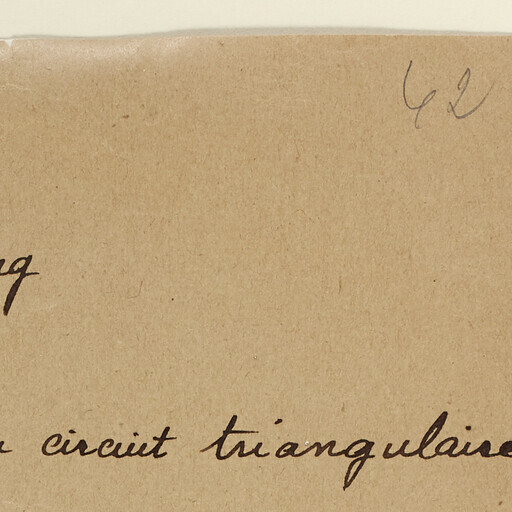 42
circuit triangulaire